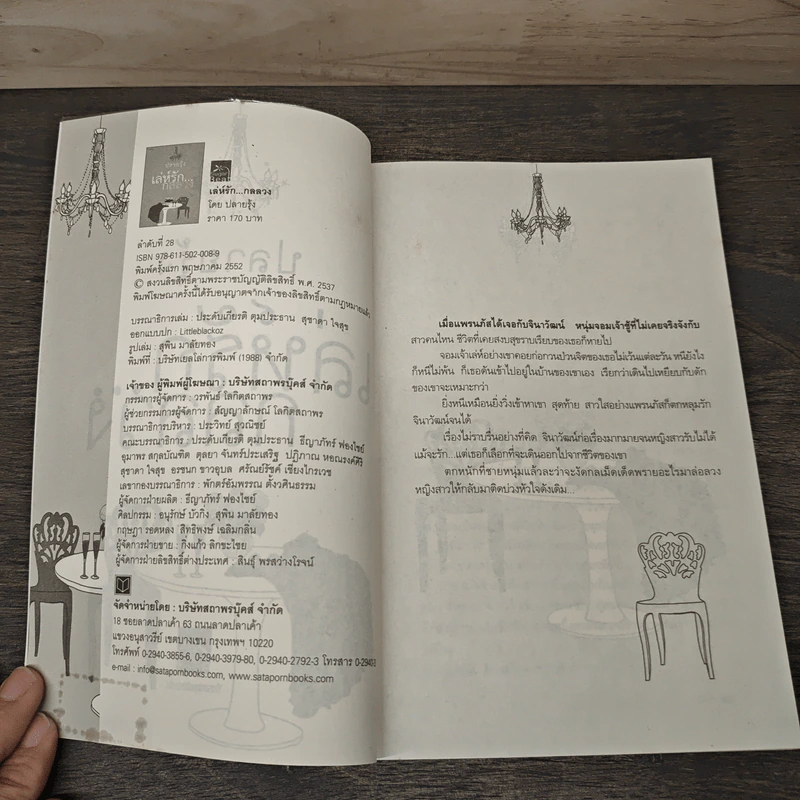 เล่ห์รัก...
กลลวง
เล่ห์รัก...กลลวง
โดย ปลายรุ้ง
ราคา 170 บาท
ลำดับที่ 28
ISBN 978-611-502-008-9
พิมพ์ครั้งแรก พฤษภาคม 2552
© สงวนลิขสิทธิ์ตามพระราชบัญญัติลิขสิทธิ์ พ.ศ. 2537
พิมพ์โฆษณาครั้งนี้ได้รับอนุญาตจากเจ้าของลิขสิทธิ์ตามกฎหมายแล้ว
บรรณาธิการเล่ม : ประดับเกียรติ ตุมประธาน สุชาดา ใจสุข
ออกแบบปก : Littleblackoz
รูปเล่ม : สุพิน มาลัยทอง
พิมพ์ที่ : บริษัทเยลโล่การพิมพ์ (1988) จำกัด
เจ้าของ ผู้พิมพ์ผู้โฆษณา : บริษัทสถาพรบุ๊คส์ จำกัด
กรรมการผู้จัดการ : วรพันธ์ โลกิตสถาพร
ผู้ช่วยกรรมการผู้จัดการ : สัญญาลักษณ์ โลกิตสถาพร
บรรณาธิการบริหาร : ประวิทย์ สุวณิชย์
คณะบรรณาธิการ : ประดับเกียรติ ตุมประธาน ธีญาภัทร์ ฟองไซย์
อุมาพร สกุลบัณฑิต ตุลยา จันทร์ประเสริฐ ปฏิภาณ หอณรงค์ศิริ
สุชาดา ใจสุข อรชนก ขาวอุบล ศรัณย์รัชต์ เชียงไกรเวช
เลขากองบรรณาธิการ : พักตร์อัมพรรณ ตั้งวศินธรรม
ผู้จัดการฝ่ายผลิต : ธีญาภัทร์ ฟองไซย์
ศิลปกรรม : อนุรักษ์ บัวกิ่ง สุพิน มาลัยทอง
กฤษฎา รอดหลง สิทธิพงษ์ เฉลิมกลิ่น
ผู้จัดการฝ่ายขาย : กิ่งแก้ว ลิกขะไชย
ผู้จัดการฝ่ายลิขสิทธิ์ต่างประเทศ : สินธุ์ พรสว่างโรจน์
จัดจำหน่ายโดย : บริษัทสถาพรบุ๊คส์ จำกัด
18 ซอยลาดปลาเค้า 63 ถนนลาดปลาเค้า
แขวงอนุสาวรีย์ เขตบางเขน กรุงเทพฯ 10220
โทรศัพท์ 0-2940-3855-6, 0-2940-3979-80, 0-2940-2792-3 โทรสาร
e-mail : info@satapornbooks.com, www.satapornbooks.com
เมื่อแพรนภัสได้เจอกับจินาวัฒน์ หนุ่มจอมเจ้าชู้ที่ไม่เคยจริงจังกับ
สาวคนไหน ชีวิตที่เคยสงบสุขราบเรียบของเธอก็หายไป
จอมเจ้าเล่ห์อย่างเขาคอยก่อกวนป่วนจิตของเธอไม่เว้นแต่ละวัน หนียังไง
ก็หนีไม่พ้น ก็เธอดันเข้าไปอยู่ในบ้านของเขาเอง เรียกว่าเดินไปเหยียบกับดัก
ของเขาจะเหมาะกว่า
ยิ่งหนีเหมือนยิ่งวิ่งเข้าหาเขา สุดท้าย สาวใสอย่างแพรนภัสก็ตกหลุมรัก
จินาวัฒน์จนได้
เรื่องไม่ราบรื่นอย่างที่คิด จินาวัฒน์ก่อเรื่องมากมายจนหญิงสาวรับไม่ได้
แม้จะรัก...แต่เธอก็เลือกที่จะเดินออกไปจากชีวิตของเขา
ตกหนักที่ชายหนุ่มแล้วละว่าจะงัดกลเม็ดเด็ดพรายอะไรมาล่อลวง
หญิงสาวให้กลับมาติดบ่วงหัวใจดังเดิม...